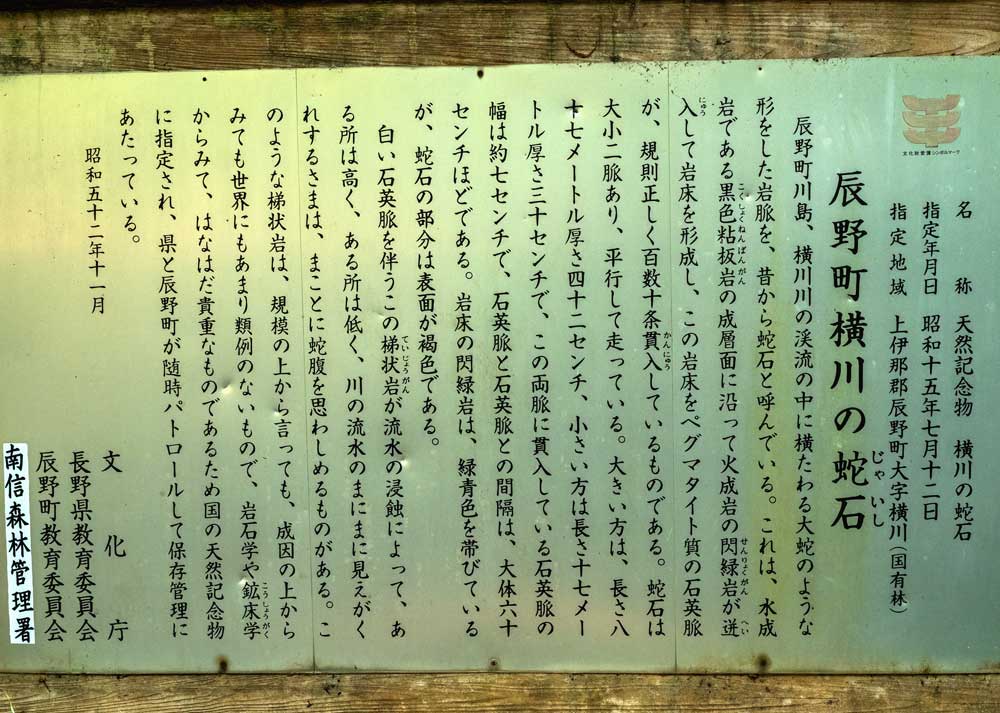 文化財愛護シンボルマーク
名　称　天然記念物　横川の蛇石
指定年月日　昭和十五年七月十二日
指定地域　上伊那郡辰野町大字横川（国有林）
辰野町横川の蛇石
じゃいし
辰野町川島、横川川の渓流の中に横たわる大蛇のような
形をした岩脈を、昔から蛇石と呼んでいる。これは、水成
岩である黒色粘板岩の成層面に沿って火成岩の閃緑岩が迸
こくしょくねんばんがん　せんりょくがん　へい
入して岩床を形成し、この岩床をペグマタイト質の石英脈
にゅう
が、規則正しく百数十条貫入しているものである。蛇石は
かんにゅう
大小二脈あり、平行して走っている。大きい方は、長さ八
十七メートル厚さ四十二センチ、小さい方は長さ十七メー
トル厚さ三十センチで、この両脈に貫入している石英脈の
幅は約七センチで、石英脈と石英脈との間隔は、大体六十
センチほどである。岩床の閃緑岩は、緑青色を帯びている
が、蛇石の部分は表面が褐色である。
白い石英脈を伴うこの梯状岩が流水の浸蝕によって、あ
ていじょうがん
る所は高く、ある所は低く、川の流水のまにまに見えがく
れするさまは、まことに蛇腹を思わしめるものがある。こ
のような梯状岩は、規模の上から言っても、成因の上から
みても世界にもあまり類例のないもので、岩石学や鉱床学
こうしょうがく
からみて、はなはだ貴重なものであるため国の天然記念物
に指定され、県と辰野町が随時パトロールして保存管理に
あたっている。
昭和五十二年十一月
文化庁
長野県教育委員会
辰野町教育委員会
南信森林管理署